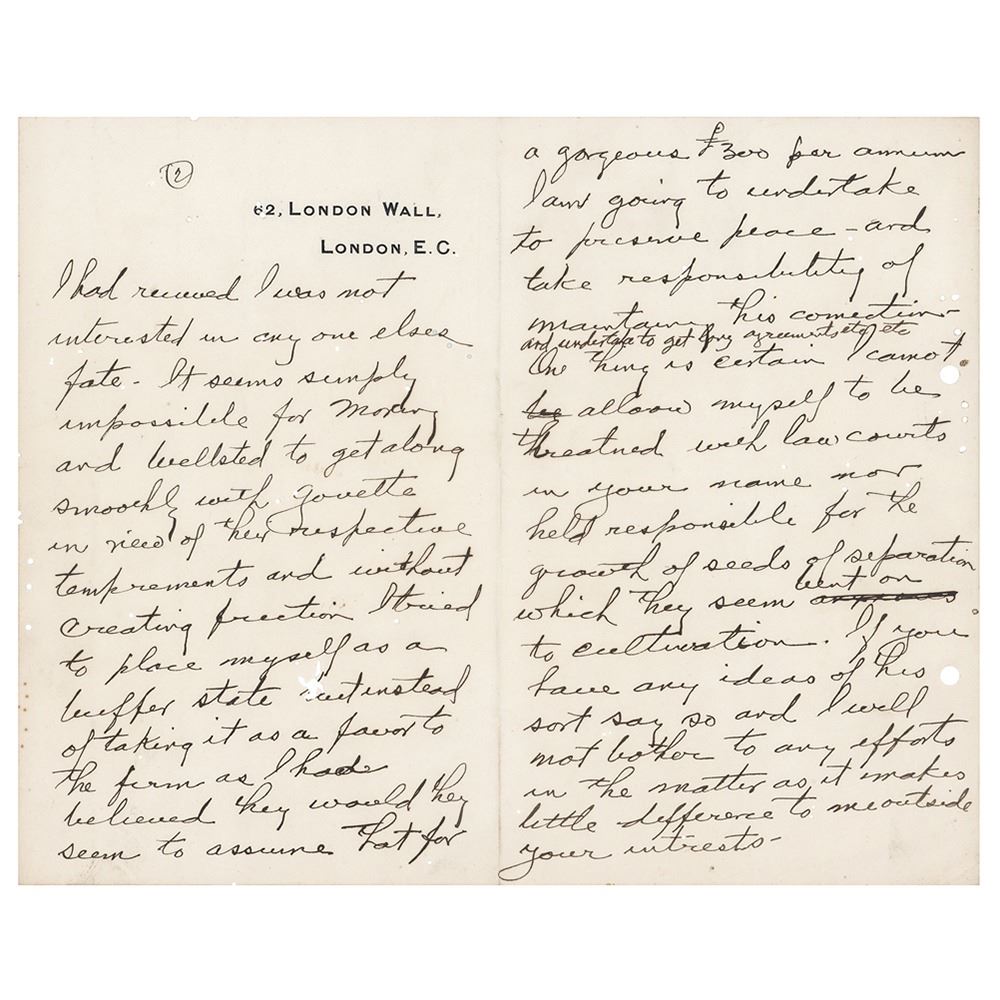 2
62, LONDON WALL,
LONDON, E.C.
I had received I was not
interested in any one elses
fate - It seems simply
impossible for Moring
and Wellsted to get along
smoothly with Govette
in view of their respective
temprements and without
creating friction I tried
to place myself as a
buffer state but instead
of taking it as a favor to
the firm as I had
believed they would they
seem to assume that for
a gorgeous £300 per annum
I am going to undertake
to preserve peace - and
take responsibility of
maintaing this connection
and undertake to get long agreements etc etc
One thing is certain I cannot
be allow myself to be
threatned with law courts
in your name nor
held responsible for the
growth of seeds of separation
bent on
which they seem
to cultivation. If you
have any ideas of this
sort say so and I will
not bother to any efforts
in the matter as it makes
little difference to me outside
your intrests -